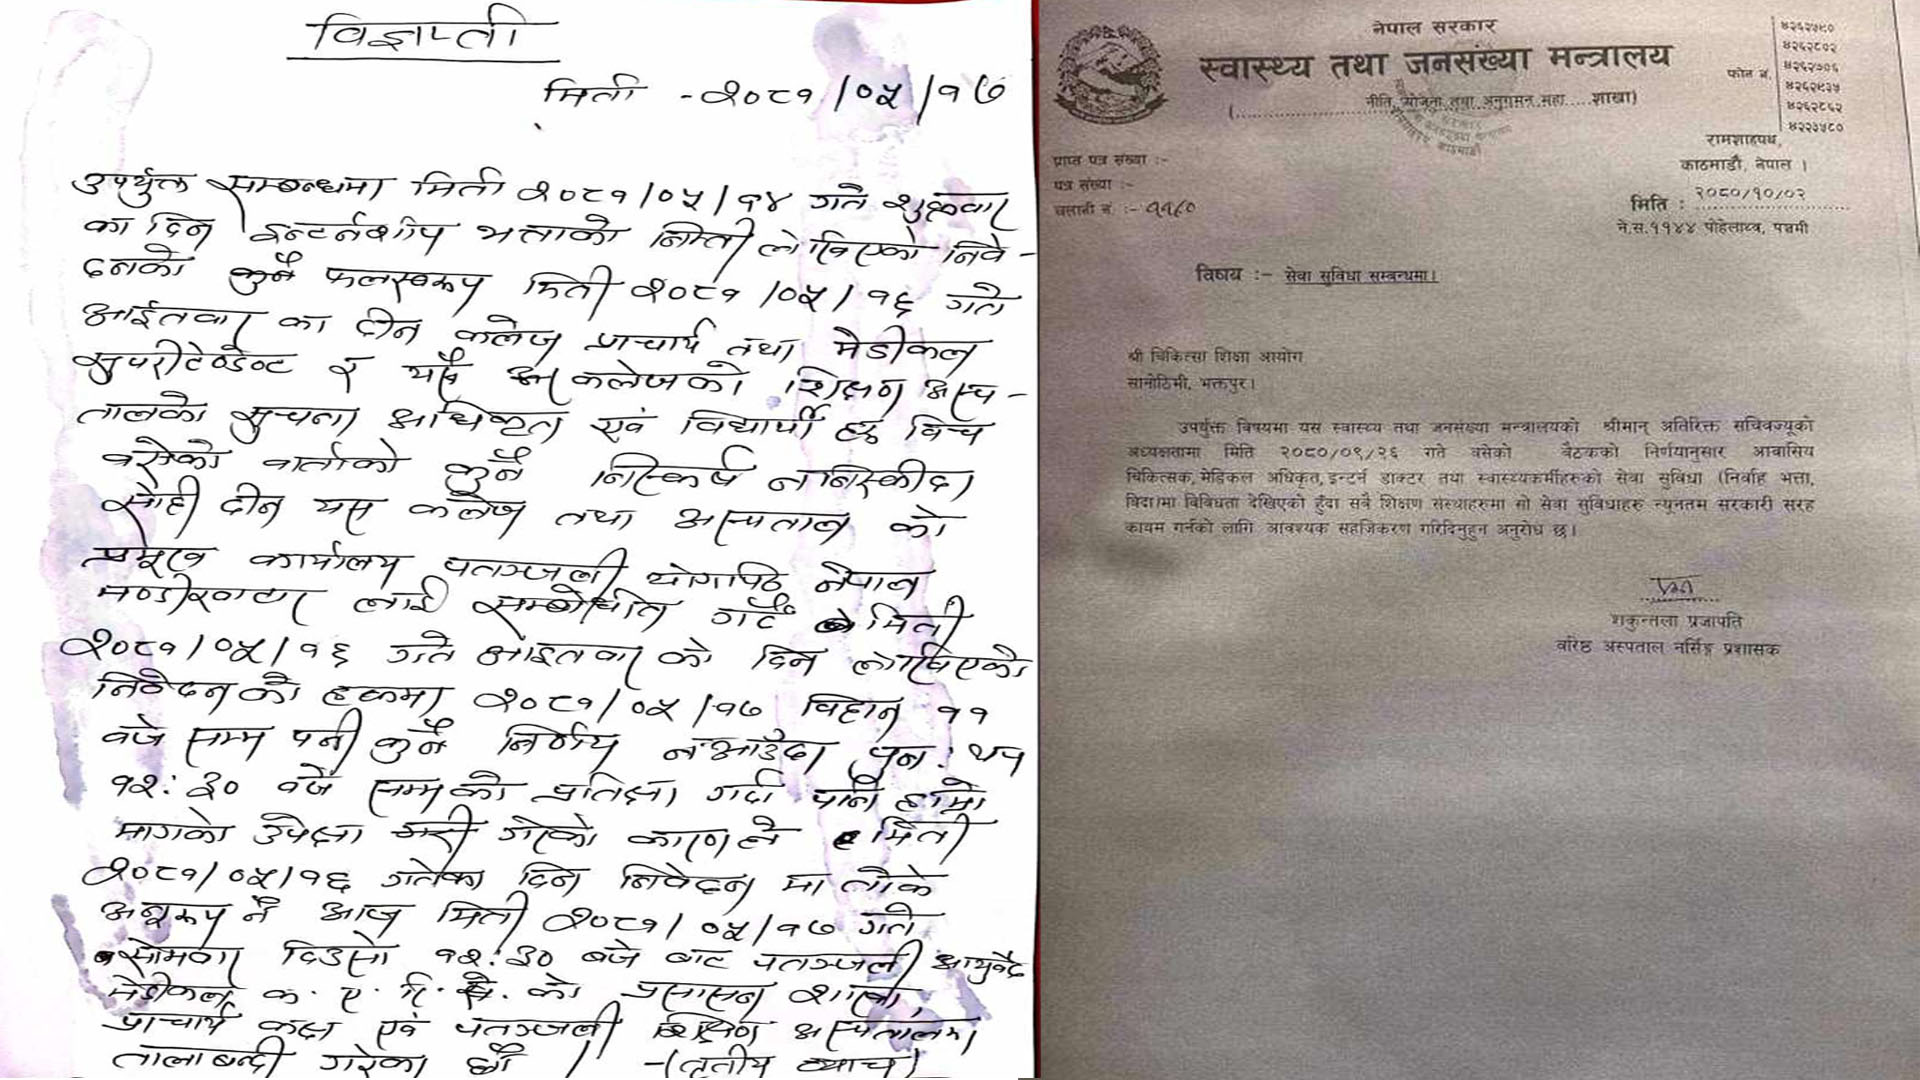 विज्ञप्ती
मिती - २०८१/०५/१७
उपर्युक्त सम्बन्धमा मिती २०८१/०५/१४ गते शुक्रवार
का दिन इन्टर्नशीप भत्ताको निम्ती लेखिएको निवे-
दनको कुनै फलस्वरूप मिती २०८१/०५/१६ गते
आईतवार का दीन कलेज प्राचार्य तथा मेडीकल
सुपरीटेण्डेण्ट र यसै कलेजको शिक्षण अस्प-
तालको सुचना अधिकृत एवं विद्यार्थी हरु विच
वसेको वार्ताको कुनै निस्कर्ष ननिस्कीदा
सोही दीन यस कलेज तथा अस्पताल को
प्रमूख कार्यालय पतञ्जली योगपिठ नेपाल
मण्डीखाटार लाई सम्बोधित गर्दै मिती
२०८१/०५/१६ गते आइतवार को दिन लेखिएको
निवेदनको हकमा २०८१/०५/१७ विहान ११
वजे सम्म पनी कुनै निर्णय नआउँदा पुन: थप
१२:३० वजे सम्मको प्रतिक्षा गर्दा पनि हाम्रो
मागको उपेक्षा गरी गरेको कारणले मिती
२०८१/०५/१६ गतेका दिन निवेदन मा तोके
अनुरूप नै आज मिती २०८१/०५/१७ गते
सोमवार दिउसो १२:३० बजे बाट पतञ्जली आयुर्वेद
मेडीकल क. ए. रि. से. को प्रसासन शाखा,
प्राचार्य कक्ष एवं पतञ्जली शिक्षण अस्पतालमा
तालाबन्दी गरेका छौं । -(तृतीय व्याच)
नेपाल सरकार
स्वास्थ्य तथा जनसंख्या मन्त्रालय
(नीति, योजना तथा अनुगमन महा....शाखा)
फोन नं.
४२६२५९०
४२६२८०२
४२६२७०६
४२६२९३५
४२६२८६२
४२२३५८०
रामशाहपथ,
काठमाडौं, नेपाल ।
प्राप्त पत्र संख्या :-
पत्र संख्या :-
चलानी नं. :- ११८०
मिति : २०८०/१०/०२
ने.स.११४४ पोहेलाथ्व, पञ्चमी
विषय :- सेवा सुविधा सम्बन्धमा।
श्री चिकित्सा शिक्षा आयोग
सानोठिमी, भक्तपुर।
उपर्युक्त विषयमा यस स्वास्थ्य तथा जनसंख्या मन्त्रालयको श्रीमान् अतिरिक्त सचिवज्यूको
अध्यक्षतामा मिति २०८०/०९/२६ गते वसेको बैठकको निर्णयानुसार आवासिय
चिकित्सक, मेडिकल अधिकृत, इन्टर्न डाक्टर तथा स्वास्थ्यकर्मीहरुको सेवा सुविधा (निर्वाह भत्ता,
विदा)मा विविधता देखिएको हुँदा सबै शिक्षण संस्थाहरुमा सो सेवा सुविधाहरु न्यूनतम सरकारी सरह
कायम गर्नको लागि आवश्यक सहजिकरण गरिदिनुहुन अनुरोध छ।
शकुन्तला प्रजापति
वरिष्ठ अस्पताल नर्सिङ्ग प्रशासक